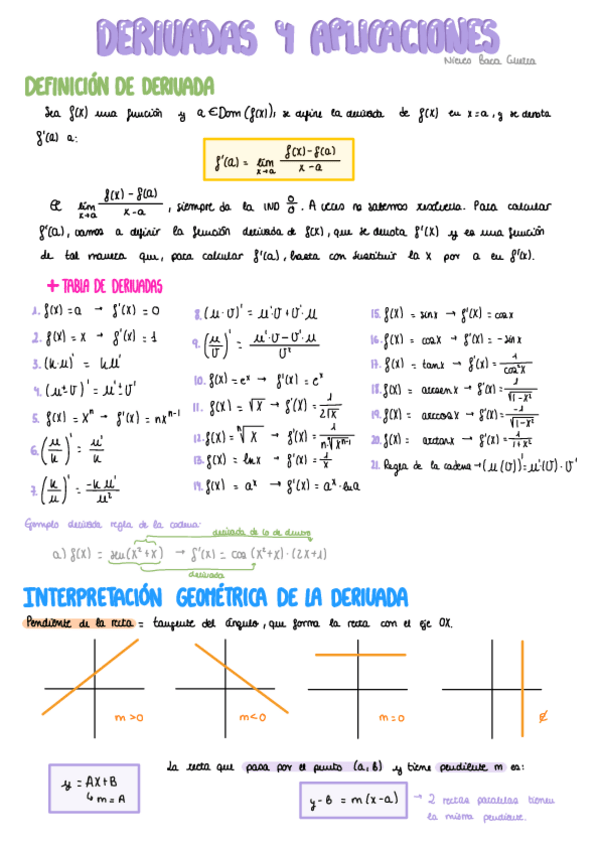 DERIVADAS Y APLICACIONES
Nieves Baca
DEFINICIÓN DE DERIVADA
Sea f(x) una función y a ∈ Dom (f(x)), se define la derivada de f(x) en x=a, y se denota
f'(a) a:
f'(a) = lim x→a (f(x) - f(a)) / (x - a)
El lim x→a (f(x) - f(a)) / (x - a), siempre da la IND 0/0. A veces no sabemos resolverla. Para calcular
f'(a), vamos a definir la función derivada de f(x), que se denota f'(x) y es una función
de tal manera que, para calcular f'(a), basta con sustituir la x por a en f'(x).
+ TABLA DE DERIVADAS
1. f(x) = a → f'(x) = 0
2. f(x) = x → f'(x) = 1
3. (k·u)' = ku'
4. (u±v)' = u'±v'
5. f(x) = xⁿ → f'(x) = nxⁿ⁻¹
6. (u/k)' = u'/k
7. (k/u)' = -ku'/u²
8. (u·v)' = u'·v+v'·u
9. (u/v)' = (u'·v-v'·u)/v²
10. f(x) = eˣ → f'(x) = eˣ
11. f(x) = √x → f'(x) = 1/(2√x)
12. f(x) = ⁿ√x → f'(x) = 1/(n·ⁿ√xⁿ⁻¹)
13. f(x) = lnx → f'(x) = 1/x
14. f(x) = aˣ → f'(x) = aˣ·lna
15. f(x) = sinx → f'(x) = cosx
16. f(x) = cosx → f'(x) = -sinx
17. f(x) = tanx → f'(x) = 1/cos²x
18. f(x) = arcsenx → f'(x) = 1/√(1-x²)
19. f(x) = arccosx → f'(x) = -1/√(1-x²)
20. f(x) = arctanx → f'(x) = 1/(1+x²)
21. Regla de la cadena → (u(v))' = u'(v)·v'
Ejemplo derivada regla de la cadena:
derivada de lo de dentro
a) f(x) = sen(x²+x) → f'(x) = cos(x²+x)·(2x+1)
derivada
INTERPRETACIÓN GEOMÉTRICA DE LA DERIVADA
Pendiente de la recta = tangente del ángulo, que forma la recta con el eje OX.
m>0
m<0
m=0
∄
La recta que pasa por el punto (a,b) y tiene pendiente m es:
y = AX+B
↳ m = A
y-b = m(x-a)
→ 2 rectas paralelas tienen
la misma pendiente.